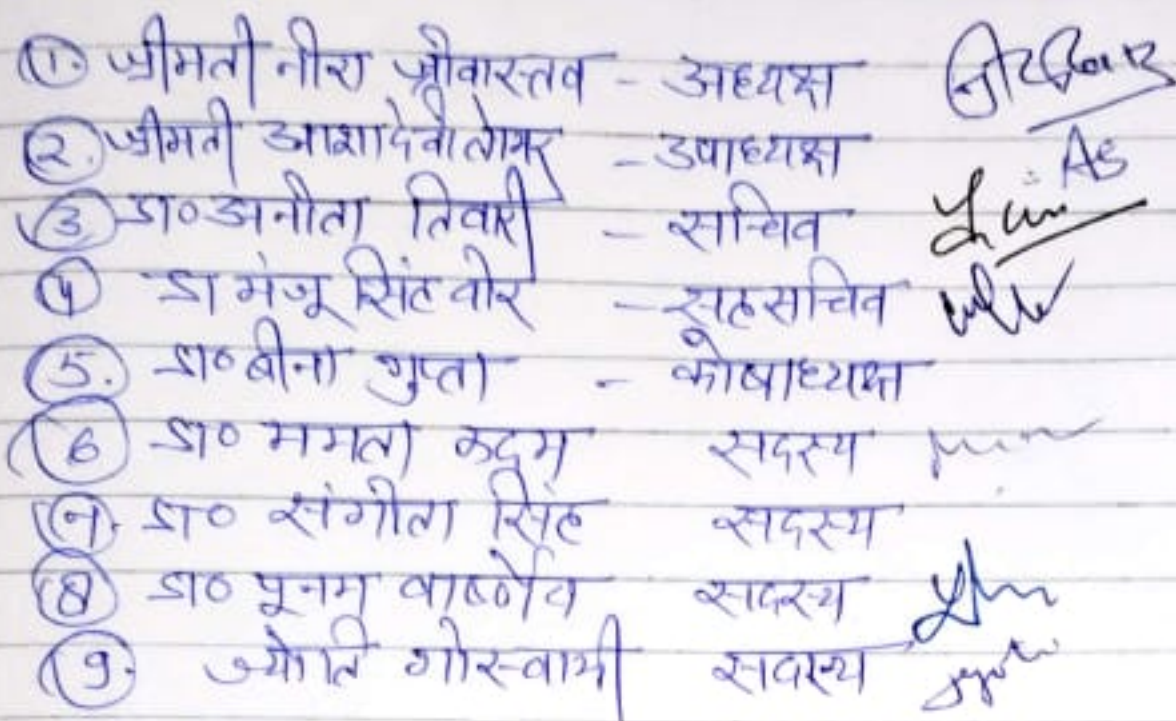 1. श्रीमती नीरा श्रीवास्तव - अध्यक्ष
2. श्रीमती आशादेवी तोमर - उपाध्यक्ष As
3. डा० अनीता तिवारी - सचिव
4 डा मंजू सिंह वोर - सहसचिव
5. डा० बीना गुप्ता - कोषाध्यक्ष
6 डा० ममता कदम सदस्य
7. डा० संगीता सिंह सदस्य
8 डा० पूनम वार्ष्णेय सदस्य
9. ज्योति गोस्वामी सदस्य